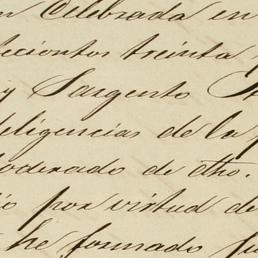 n Celebrada en
ecientos treinta
y Sargento
deligencias de la p
oderado de dho.
io por virtud de
he formado